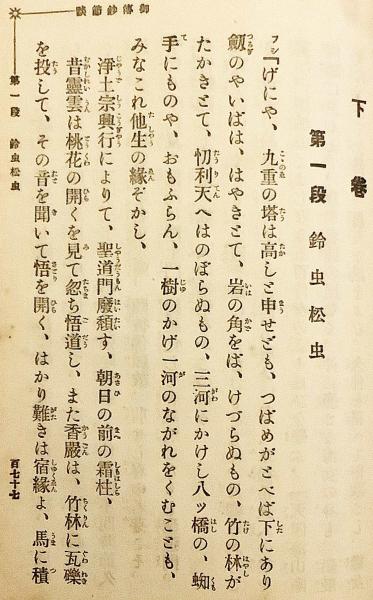 御傳鈔節談
下卷
第一段 鈴虫松虫
フシ「げにや、九重の塔は高しと申せども、つばめがとべば下にあり
劔のやいばは、はやきとて、岩の角をば、けづらぬもの、竹の林が
たかきとて、忉利天へはのぼらぬもの、三河にかけし八ッ橋の、蜘
手にものや、おもふらん、一樹のかげ一河のながれをくむことも、
みなこれ他生の緣ぞかし、
淨土宗興行によりて、聖道門廢頽す、朝日の前の霜柱、
昔靈雲は桃花の開くを見て忽ち悟道し、また香嚴は、竹林に瓦礫
を投して、その音を聞いて悟を開く、はかり難きは宿緣よ、馬に積
第一段 鈴虫松虫
百七十七